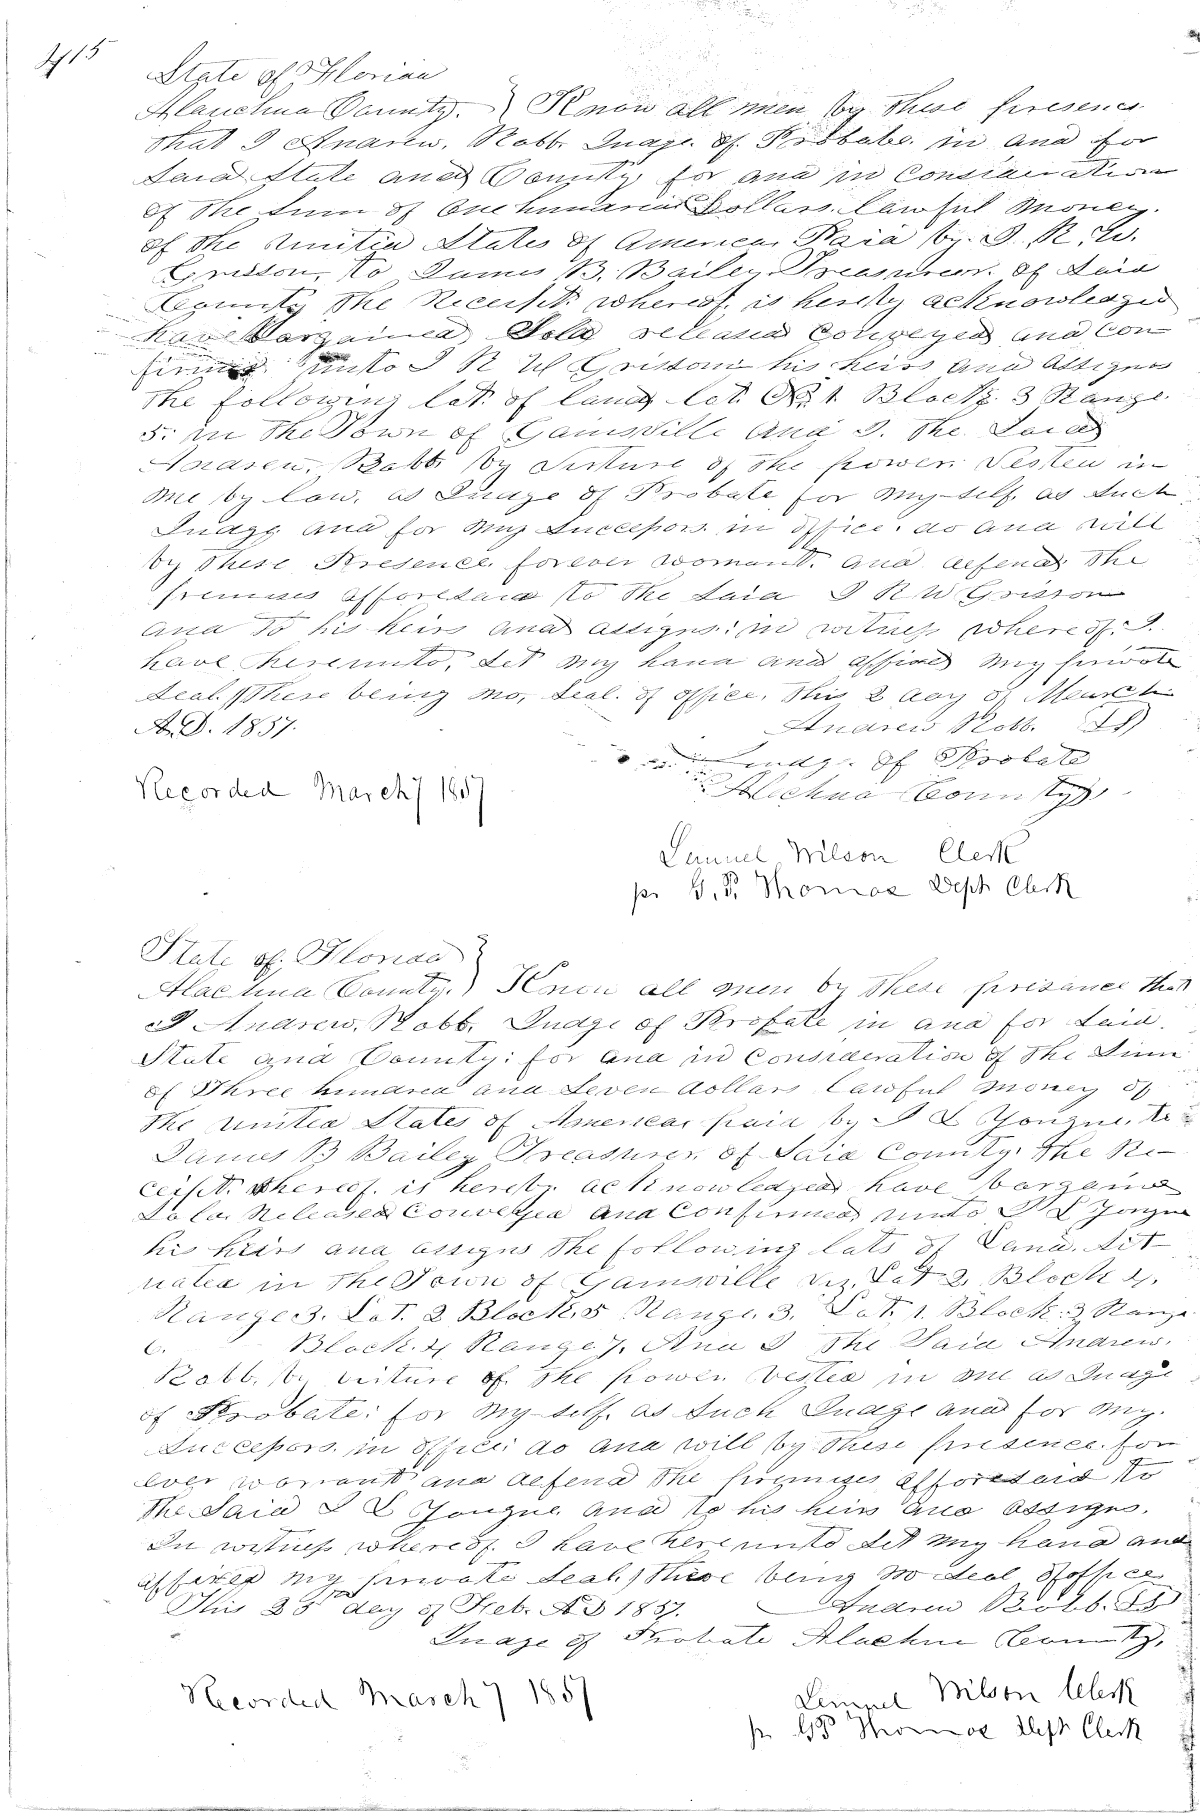 415
State of Florida
Alauchua County. } Know all men by these presence
that I Andrew. Robb. Judge. of. Probate. in and for
Said State and County, for and in Consideration
of the Sum of One hundred Dollars. lawful money.
of the United States of America, Paid by. I. R. W.
Grissom, to James B. Bailey Treasurer. of Said
County the Receipt. whereof. is hereby acknowledged
have bargained Sold released Conveyed and Con
firmed unto I R W Grissom his heirs and assigns
the following lot. of land lot. No 1. Block 3 Range.
5. in the Town of Gainsville And I. the Said
Andrew. Robb by virture of the power. Vested in
me by law. as Judge of Probate for my-self. as Such
Judge and for my Successors. in office. do and will
by these Presence forever warrant. and defend the
premises afforesaid to the Said I R W Grissom
and To his heirs and assigns: in witness whereof. I.
have hereunto, Set my hand and affixed my private
Seal. (there being no, Seal. of office. This 2 day of March
A.D. 1857. Andrew Robb. (LS)
Judge of Probate
Alachua County
Recorded March 7 1857
Lemuel Wilson Clerk
pr G. P. Thomas Dept Clerk
State of Florida }
Alachua County.) Know all men by these presance that
I Andrew. Robb. Judge of Probate in and for Said.
State and County: for and in consideration of the Sum
of Three hundred and Seven dollars lawful money of
the United States of America, paid by I L Yongue. to
James B Bailey Treasurer. of Said County. the Re-
ceipt. whereof. is hereby acknowledged have bargained
Sold. Released Conveyed and Confirmed unto I L Yongue
his heirs and assigns the following lots of Land. Sit
uated in the Town of Gainsville viz. Lot 2. Block 4.
Range 3. Lot. 2 Block. 5 Range. 3. Lot. 1. Block. 3 Range
6. Block. 4 Range 7. And I the Said Andrew.
Robb. by virture of the power. Vested in me as Judge
of Probate: for my-self. as Such Judge and for my.
Successors. in office: do and will by these presence. for
ever warrant and defend the premises afforesaid to
the Said I L Yongue. and to his heirs and assigns.
In witness whereof. I have hereunto Set my hand and
affixed my private Seal. (there being no Seal of office
This 28th day of Feb. AD 1857. Andrew Robb. LS
Judge of Probate Alachua County.
Recorded March 7 1857
Lemuel Wilson Clerk
pr GP Thomas Dept Clerk